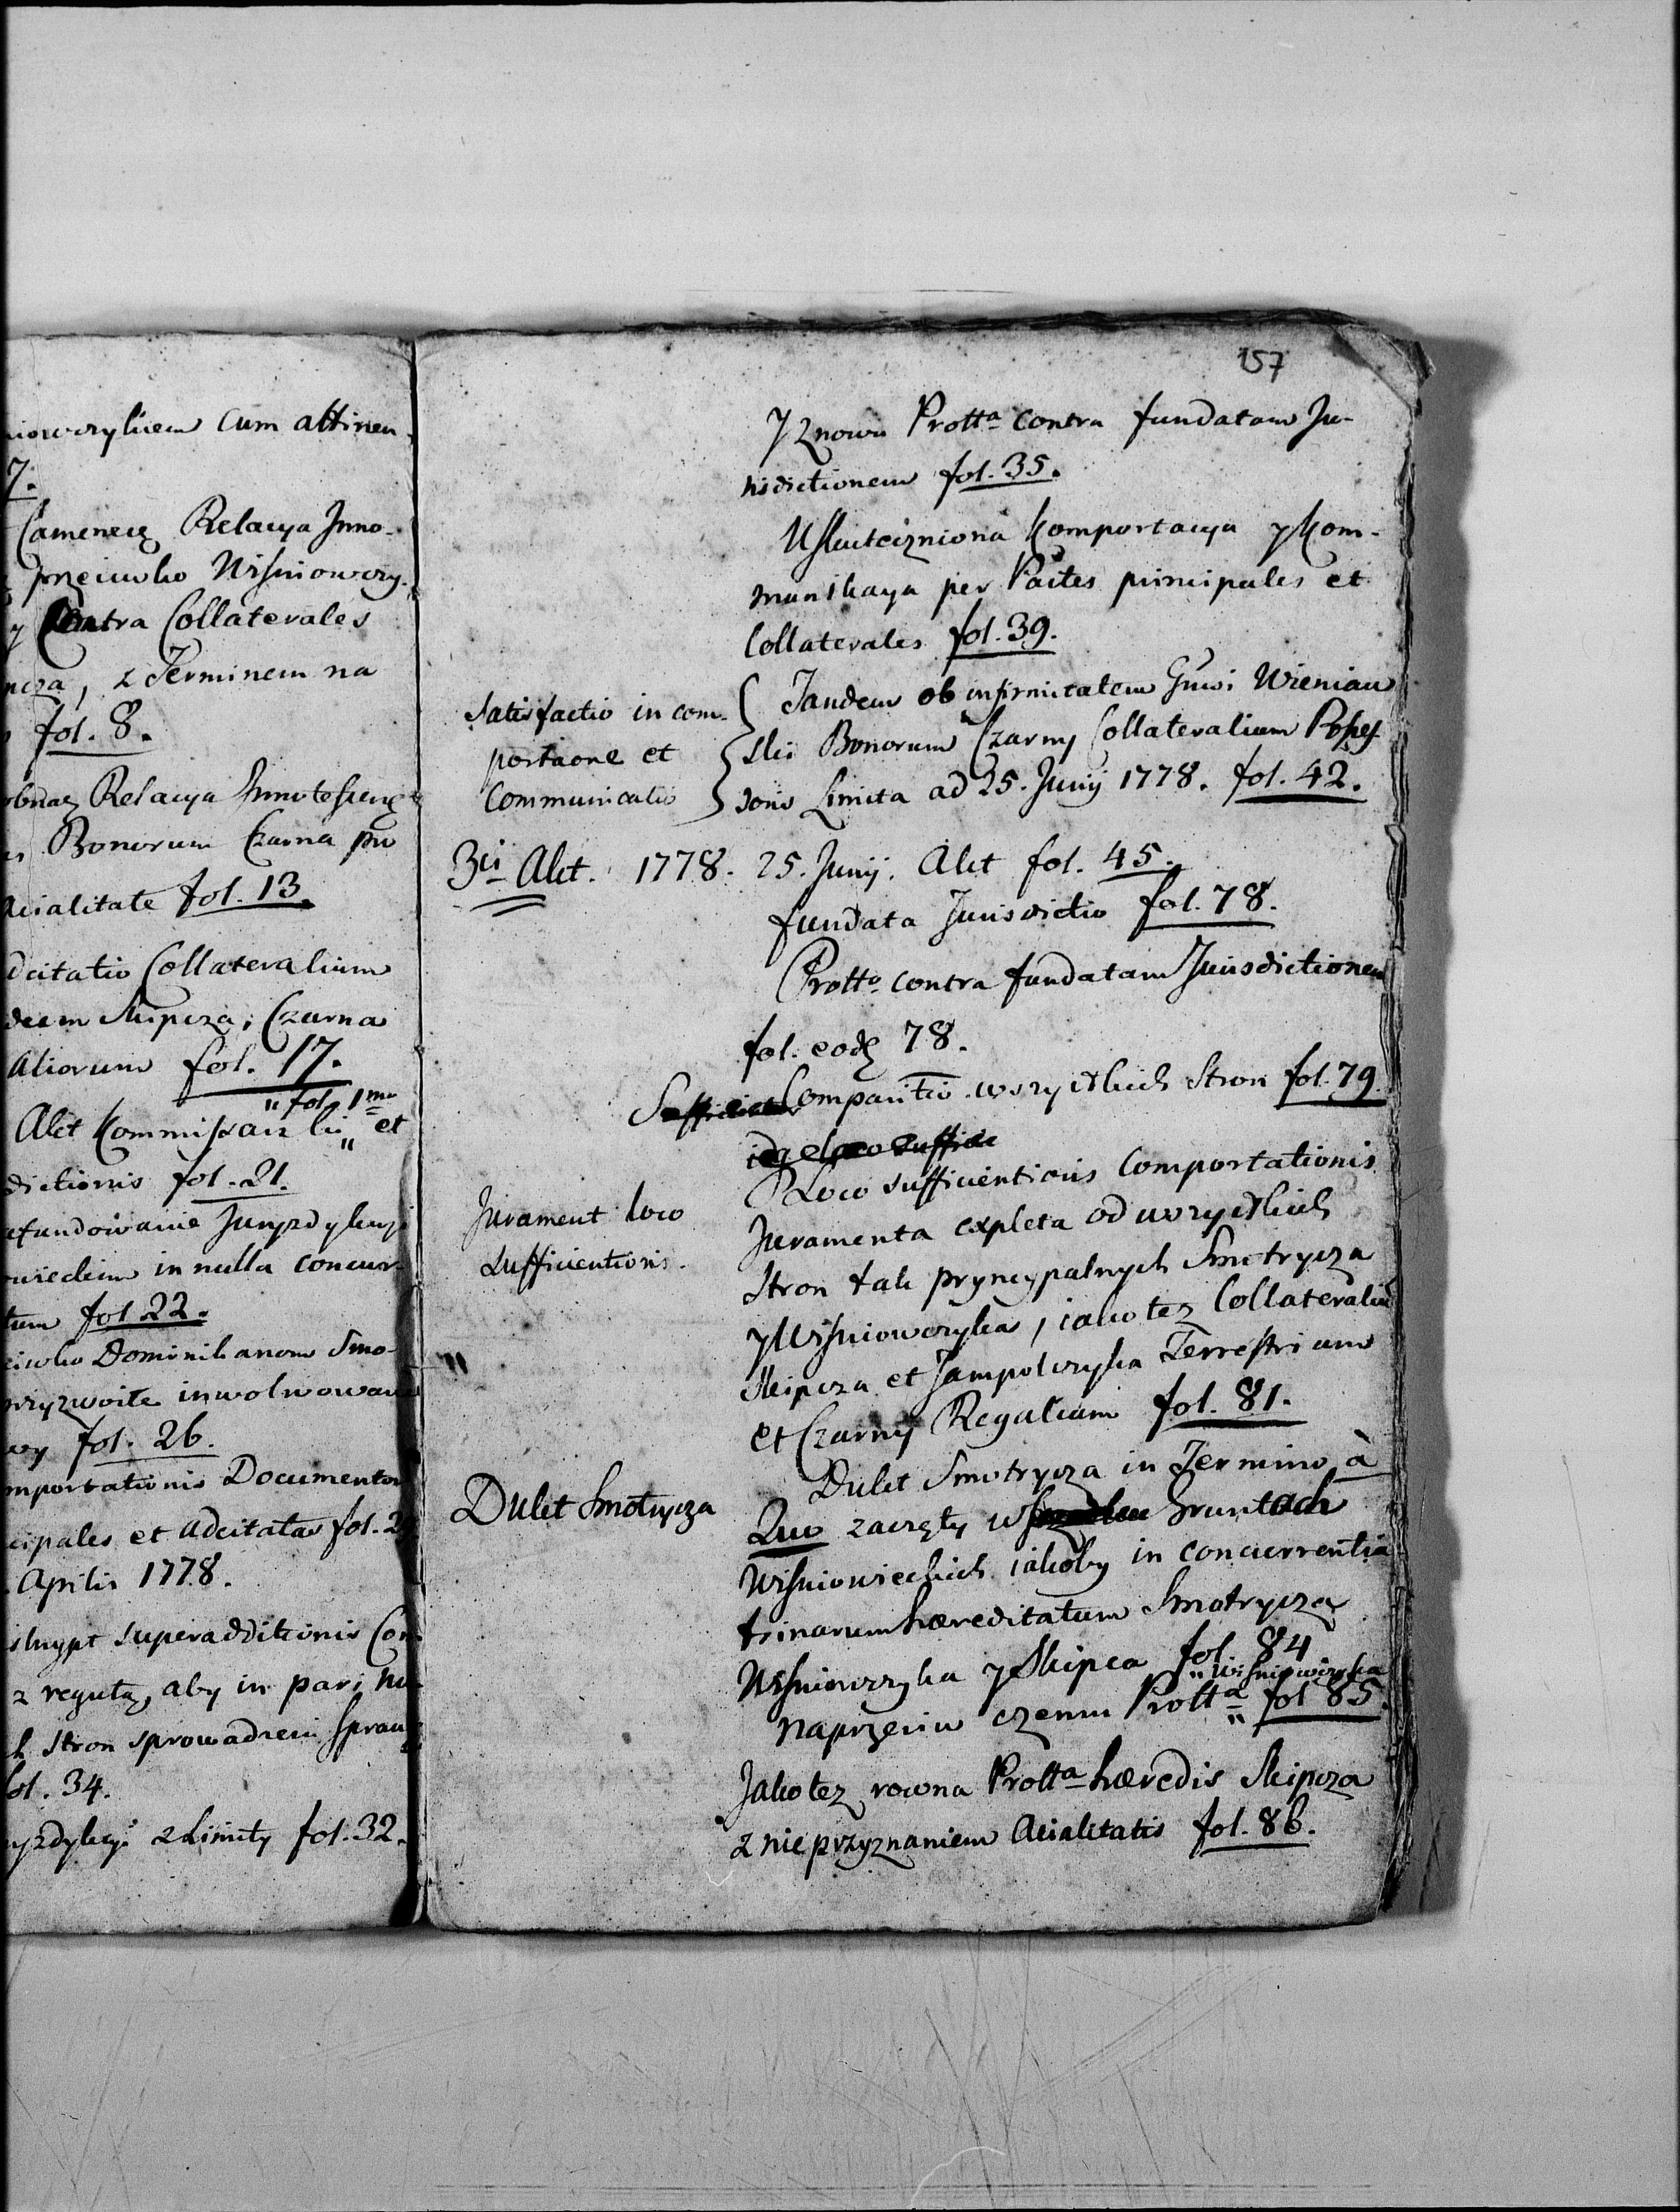 niowczykiem cum attinen-
7.
Camenecę Relacya Inno-
przeciwko Wiśniowczy-
y Contra Collaterales
pcza, z Terminem na
fol. 8.
Relacya Innotescenę
Bonorum Czarna pro
Acialitate fol. 13.
dcitatio Collateralium
deem Skipcza, Czarna
Aliorum fol. 17.
" fol. 1mo
Akt Kommissarski " et
dictionis fol. 21.
afundowanie Juryzdykcyi
owieckim in nulla concur-
tum fol. 22.
ciwko Dominikanom Smo-
przyzwoite inwolwowanie
wy fol. 26.
mportationis Documentor
cipales et adcitatas fol. 29
Aprilis 1778.
skrypt superadditionis Com
z regułą, aby in pari nu-
h stron sprowadzeni spraw
fol. 34.
uryzdykcyi z Limity fol. 32.
157
Y znowu Protta contra fundatam Ju-
risdictionem fol. 35.
Uskuteczniona Komportacya y Kom-
munikacya per Partes principales et
Collaterales fol. 39.
Satisfactio in com-
portaone et
Communicatio
Tandem ob infirmitatem Gnosi Wieniaw
skii Bonorum Czarny Collateralium Posses
soris Limita ad 25. Junij 1778. fol. 42.
3ci Akt. 1778. 25. Junij. Akt fol. 45.
fundata Jurisdictio fol. 78.
Protta contra fundatam Jurisdictionem
fol. eodę 78.
Comparitio wszystkich Stron fol. 79.
Jurament loco
sufficientionis.
Loco sufficientionis Comportationis
Juramenta expleta od wszystkich
stron tak pryncypalnych Smotrycza
y Wiśniowczyka, iako tez Collateraliu
Skipcza et Jampolczyka Terrestrium
et Czarny Regalium fol. 81.
Dukt Smotrycza
Dukt Smotrycza in Termino à
Quo zaczęty w Gruntach
Wiśniowieckich iakoby in concurrentia
trinarum hæreditatum Smotrycza
Wiśniowczyka y Skipca fol. 84
" Wiśniowczyka
Naprzeciw czemu Protta " fol 85.
Jako tez rowna Protta hæredis Skipcza
z nieprzyznaniem Acialitatis fol. 86.